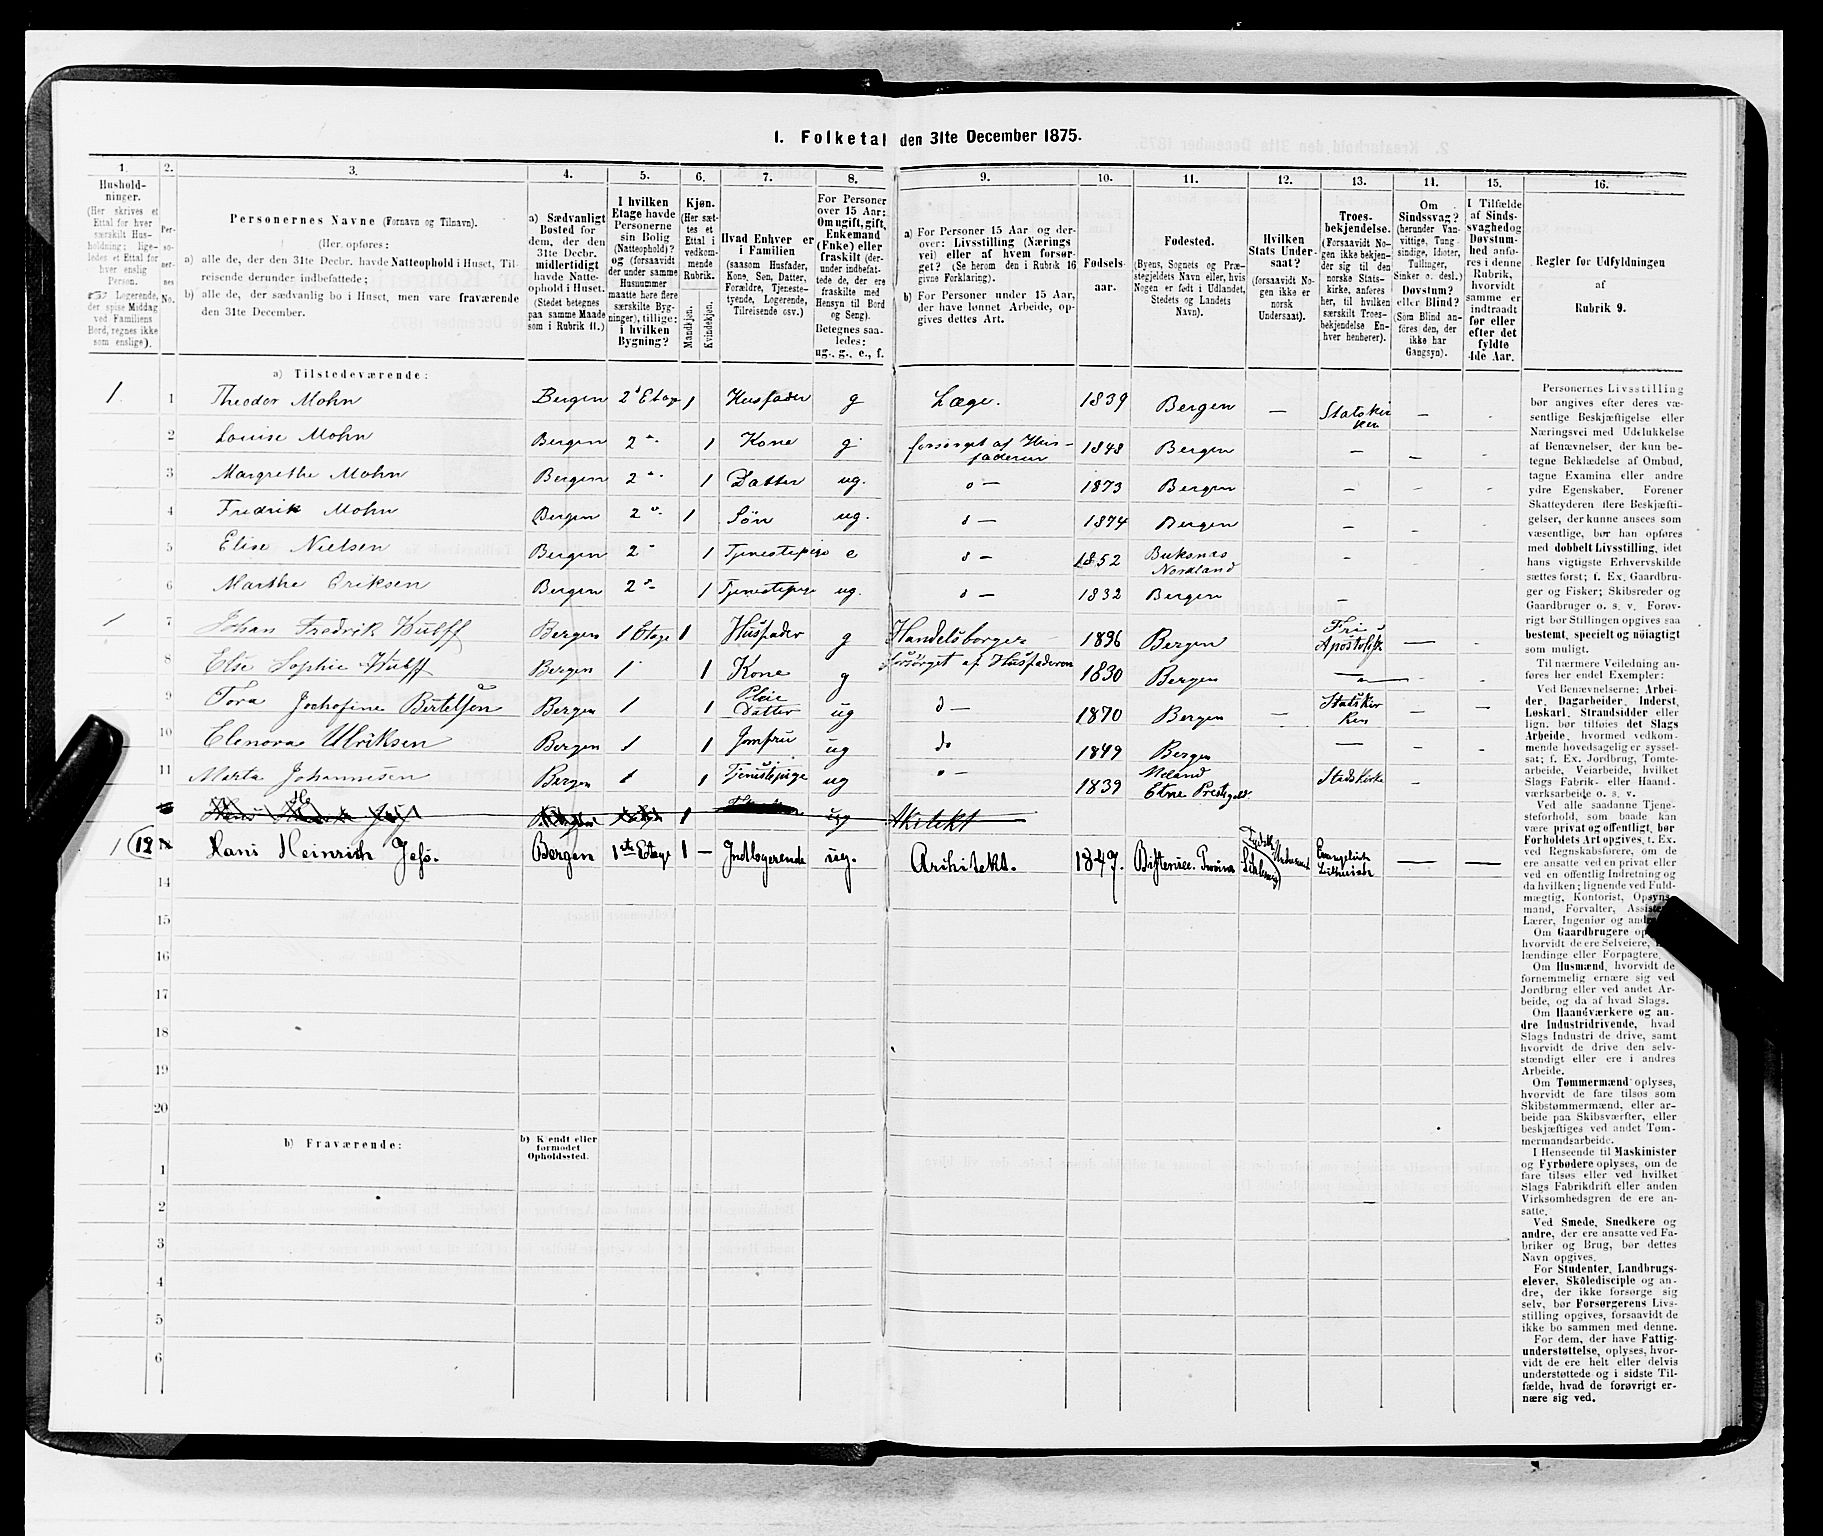 1. Folketal den 31te December 1875.
1. 2. 3. 4. 5. 6. 7. 8. 9. 10. 11. 12. 13. 14. 15. 16.
Hushold-
ninger.
(Her skrives et
Ettal for hver
særskilt Hus-
holdning; lige-
ledes et Ettal for
hver enslig
Person.
Logerende,
der spise Middag
ved Familiens
Bord, regnes ikke
som enslige).
Per-
so-
ner-
nes
No.
Personernes Navne (Fornavn og Tilnavn).
(Her opføres:
a) alle de, der den 31te Decbr. havde Natteophold i Huset, Til-
reisende derunder indbefattede;
b) alle de, der sædvanlig bo i Huset, men vare fraværende
den 31te December.
a) Sædvanligt
Bosted for
dem, der den
31te Decbr.
midlertidigt
havde Natte-
ophold i Huset.
(Stedet betegnes
paa samme Maade
som i Rubrik 11.)
I hvilken
Etage havde
Personerne
sin Bolig
(Natteophold)?
og (forsaavidt
der under samme
Husnummer
maatte høre flere
særskilte Byg-
ninger), tillige:
i hvilken
Bygning?
Kjøn.
(Her sæt-
tes et
Ettal i
vedkom-
mende
Rubrik.
Mandkjøn.
Kvindekjøn.
Hvad Enhver er
i Familien
(saasom Husfader,
Kone, Søn, Datter,
Forældre, Tjeneste-
tyende, Logerende,
Tilreisende osv.)
For Personer
over 15 Aar:
Om ugift, gift,
Enkemand
(Enke) eller
fraskilt (der-
under indbefat-
tede de, der ere
fraskilte med
Hensyn til Bord
og Seng).
Betegnes saa-
ledes:
ug., g., e., f.
a) For Personer 15 Aar og der-
over: Livsstilling (Nærings
vei) eller af hvem forsør-
get? (Se herom den i Rubrik 16
givne Forklaring).
b) For Personer under 15 Aar,
der have lønnet Arbeide, op-
gives dettes Art.
Fødsels-
aar.
Fødested.
(Byens, Sognets og Præ-
stegjeldets Navn eller, hvis
Nogen er født i Udlandet,
Stedets og Landets
Navn).
Hvilken
Stats Under-
saat?
(forsaavidt No-
gen ikke er
norsk
Undersaat).
Troes-
bekjendelse.
(Forsaavidt No-
gen ikke bekjen-
der sig til den
norske Stats-
kirke, anføres
her, til hvilken
særskilt Troes-
bekjendelse En-
hver henhører).
Om
Sindssvag?
(herunder Van-
vittige, Tung-
sindige, Idioter,
Tullinger,
Sinker o. desl.)
Døvstum?
eller Blind?
(Som Blind an-
føres den, der
ikke har
Gangsyn).
I Tilfælde
af Sinds-
svaghed og
Døvstum-
hed anfø-
res i denne
Rubrik,
hvorvidt
samme er
indtraadt
før eller
efter det
fyldte
4de Aar.
Regler for Udfyldningen
af
Rubrik 9.
a) Tilstedeværende:
1 1 Theodor Mohn Bergen 2 Etage 1 Husfader g Læge. 1839 Bergen — Statskir
ken —
2 Louise Mohn Bergen 2 1 Kone g forsørget af Hus-
faderen 1848 Bergen — — -
3 Margrethe Mohn Bergen 2 1 Datter ug. 1873 Bergen — — -
4 Fredrik Mohn Bergen 2 1 Søn ug. 1874 Bergen - - -
5 Elise Nielsen Bergen 2 1 Tjenestepige e 1852 Buksnes
Nordland - - -
6 Marthe Eriksen Bergen 2 1 Tjenestepige ug. 1832 Bergen -
1 7 Johan Fredrik Wulff Bergen 1 Etage 1 Husfader g Handelsborger 1836 Bergen Fri
Apostolisk — -
8 Else Sophie Wulff Bergen 1 1 Kone g forsørget af Husfaderen 1830 Bergen
9 Tora Bertelsen Bergen 1 1 Pleie
Datter ug d — 1870 Bergen — Statskir
ken — -
10 Elenora Ulriksen Bergen 1 1 Jomfru ug do 1849 Bergen — - -
11 Marta Johannesen Bergen 1 1 Tjenestepige ug 1839 Etne Statskirke —
1 ug
1 12 Hans Heinrich Bergen 1ste Etage 1 — Indlogerende ug. Arkitekt. 1847. Evangelisk — —
14
15
16
17
18
19
20
b) Fraværende:
b) Kjendt eller
formodet
Opholdssted.
1
2
3
4
5
6
Personernes Livsstilling
bør angives efter deres væ-
sentlige Beskjæftigelse eller
Næringsvei med Udelukkelse
af Benævnelser, der kun be-
tegne Beklædelse af Ombud,
tagne Examina eller andre
ydre Egenskaber. Forener
Skatteyderen flere Beskjæfti-
gelser, der kunne ansees som
væsentlige, bør han opføres
med dobbelt Livsstilling, idet
hans vigtigste Erhvervskilde
sættes først; f. Ex. Gaardbru-
ger og Fisker; Skibsreder og
Gaardbruger o. s. v. Forøv-
rigt bør Stillingen opgives saa
bestemt, specielt og nøiagtigt
som muligt.
Til nærmere Veiledning an-
føres her endel Exempler:
Ved Benævnelserne: Arbei-
der, Dagarbeider, Inderst,
Løskarl, Strandsidder eller
lign. bør tilføies det Slags
Arbeide, hvormed vedkom-
mende hovedsagelig er syssel-
sat; f. Ex. Jordbrug, Tomte-
arbeide, Veiarbeide, hvilket
Slags Fabrik- eller Haand-
værksarbeide o. s. v.
Ved alle saadanne Tjene-
steforhold, som baade kan
være privat og offentligt, bør
Forholdets Art opgives, t. Ex.
ved Regnskabsførere, om de
ere ansatte ved en privat eller
ved en offentlig Indretning og
da hvilken; lignende ved Fuld-
mægtig, Kontorist, Opsyns-
mand, Forvalter,
Lærer, Ingeniør og
Om Gaardbrugere
hvorvidt de ere Selveiere,
lændinge eller Forpagtere.
Om Husmænd, hvorvidt de
fornemmelig ernære sig ved
Jordbrug eller ved andet Ar-
beide, og da af hvad Slags.
Om Haandværkere og an-
dre Industridrivende, hvad
Slags Industri de drive, samt
hvorvidt de drive den selv-
stændigt eller ere i andres
Arbeide.
Om Tømmermænd oplyses,
hvorvidt de fare tilsøs som
Skibstømmermænd, eller ar-
beide paa Skibsværfter, eller
beskjæftiges ved andet Tøm-
mermandsarbeide.
I Henseende til Maskinister
og Fyrbødere oplyses, om de
fare tilsøs eller ved hvilket
Slags Fabrikdrift eller anden
Virksomhedsgren de ere an-
satte.
Ved Smede, Snedkere og
andre, der ere ansatte ved Fa-
briker og Brug, bør dettes
Navn opgives.
For Studenter, Landbrugs-
elever, Skoledisciple og an-
dre, der ikke forsørge sig
selv, bør Forsørgerens Livs-
stilling opgives, forsaavidt de
ikke bo sammen med denne.
For dem, der have Fattig-
understøttelse, oplyses, hvor-
vidt de ere helt eller delvis
understøttede og i sidste Til-
fælde, hvad de forøvrigt er-
nære sig ved.